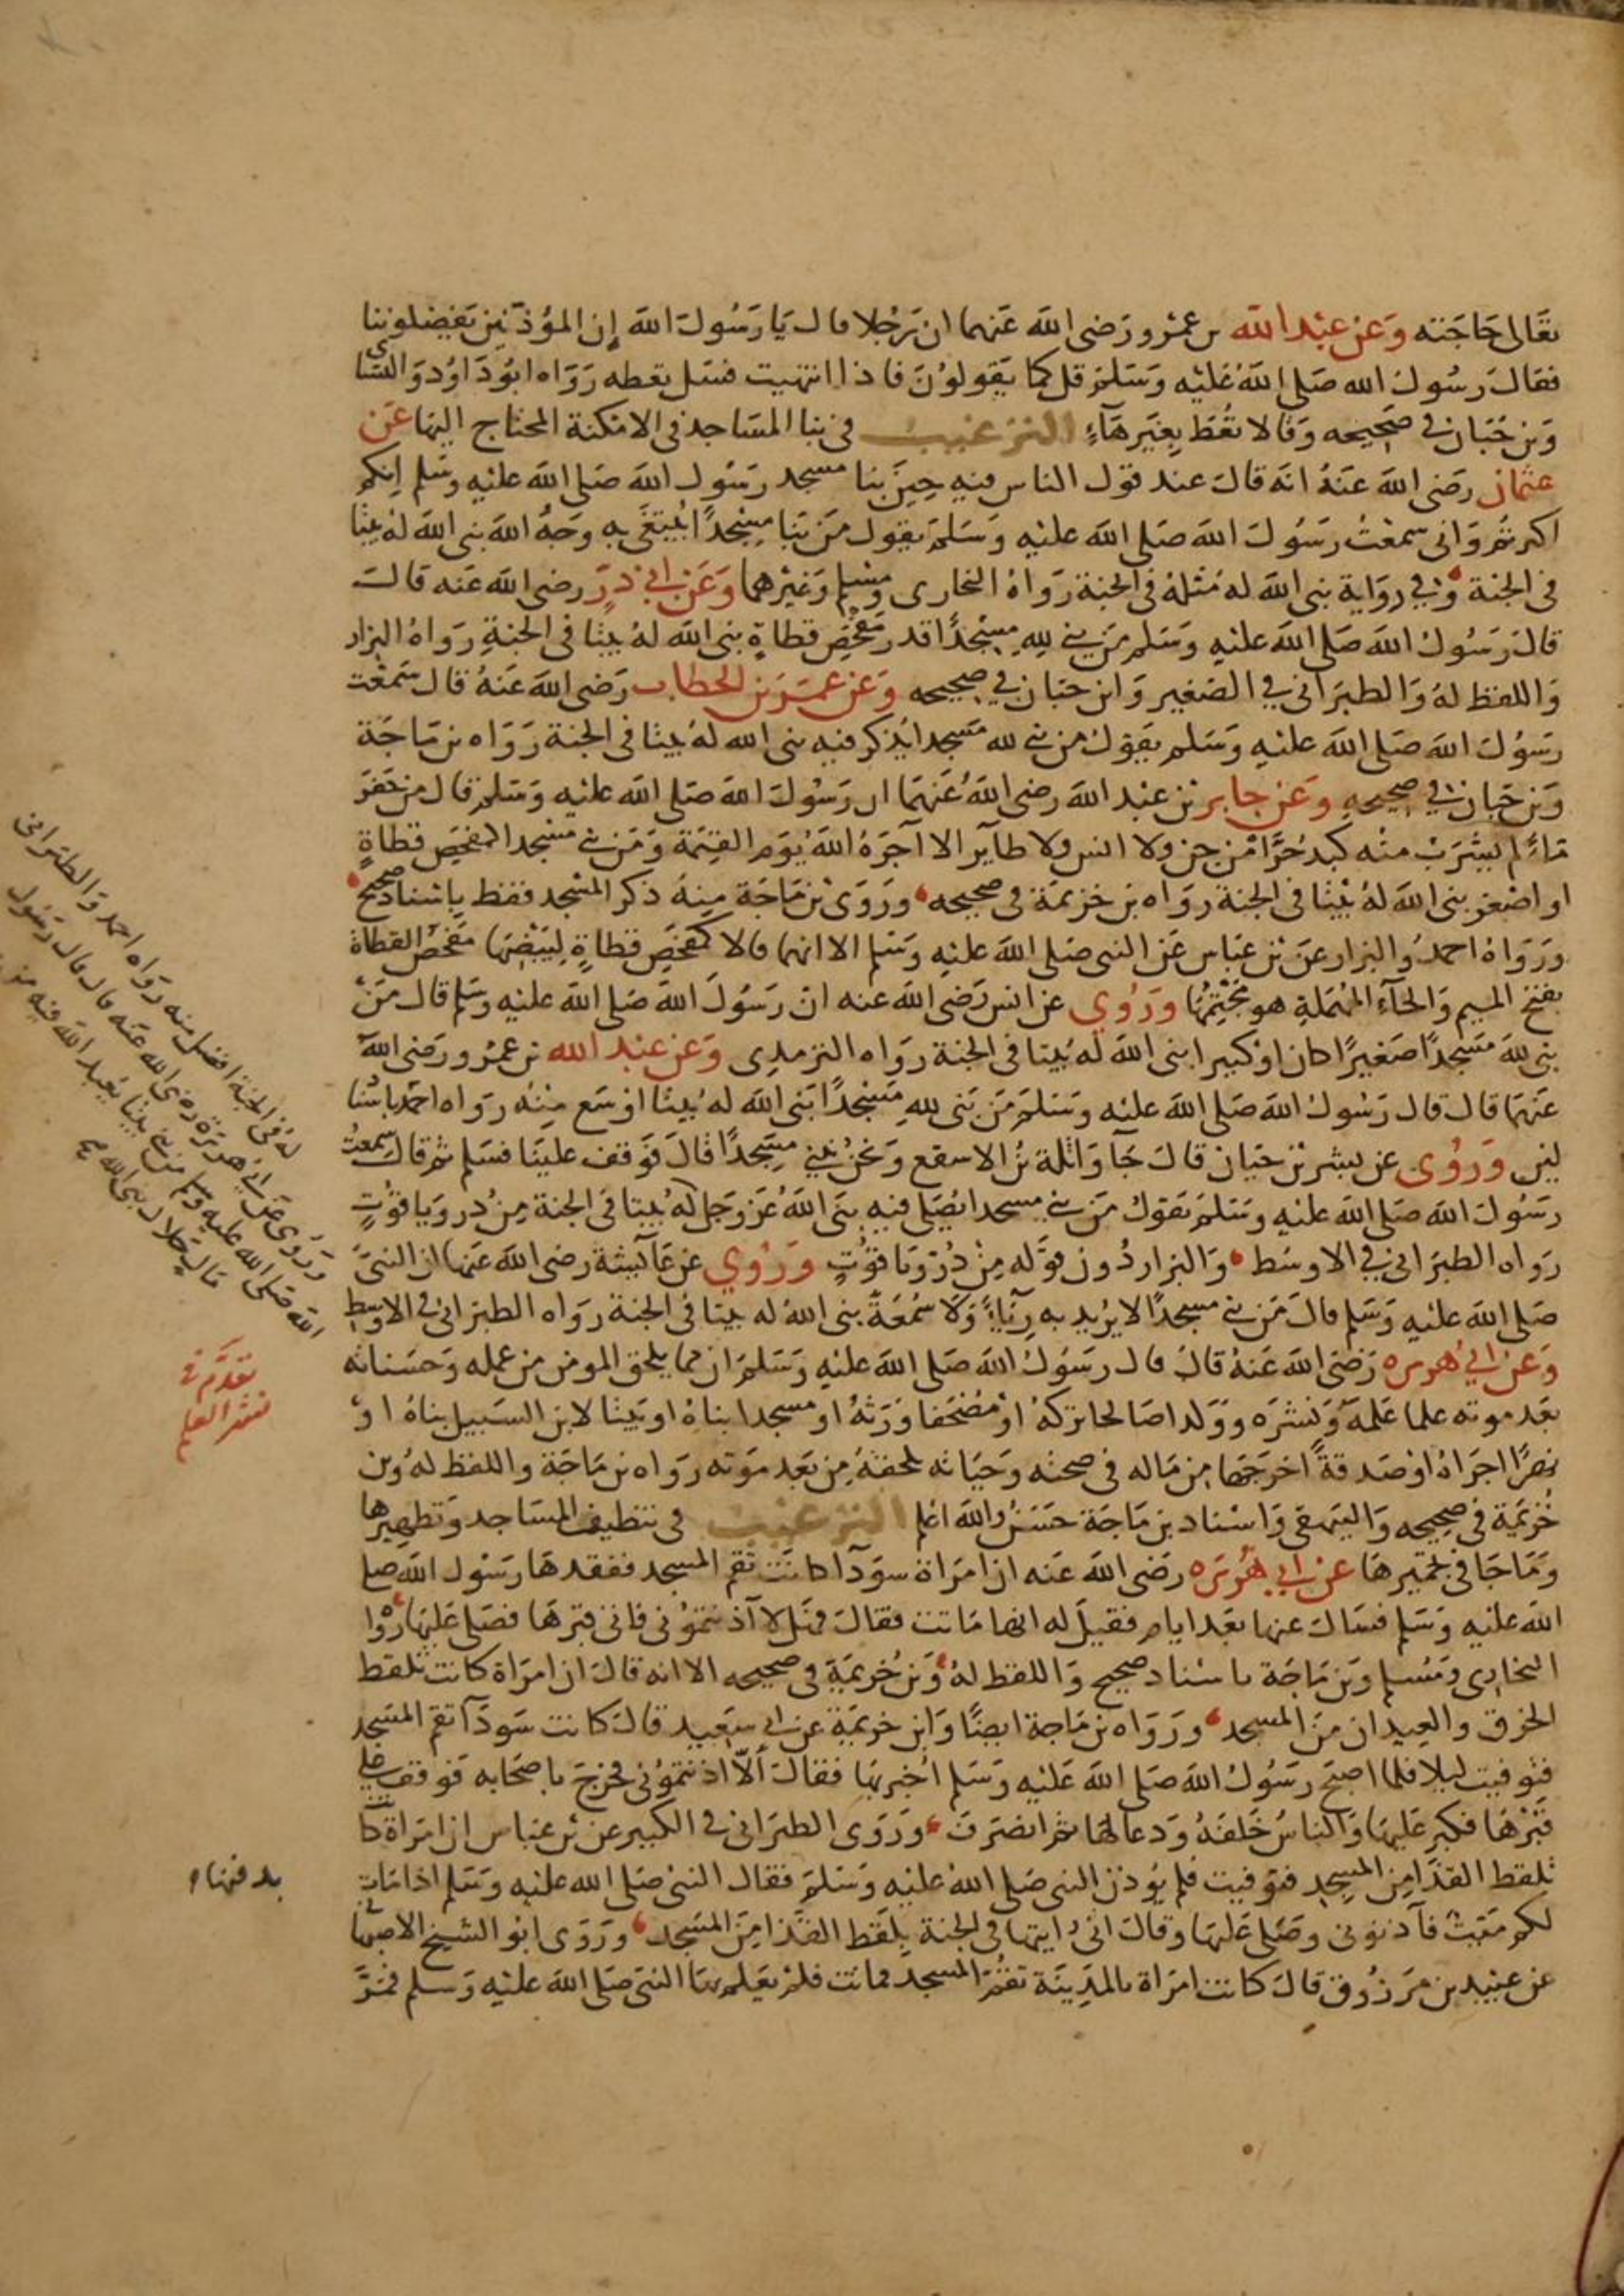 تعالى حاجته وعن عبد الله بن عمرو رضى الله عنهما ان رجلا قال يا رسول الله إن المؤذنين يفضلوننا
فقال رسول الله صلى الله عليه وسلم قل كما يقولون فاذا انتهيت فسل تعطه رواه ابو داود والنساى
وبن حبان في صحيحه وقالا تعط بغير هآء الترغيب فى بنا المساجد فى الامكنة المحتاج اليها عن
عثمان رضى الله عنه انه قال عند قول الناس فيه حين بنا مسجد رسول الله صلى الله عليه وسلم إنكم
اكثرتم وانى سمعت رسول الله صلى الله عليه وسلم يقول من بنا مسجدا يبتغى به وجه الله بنى الله له بيتا
فى الجنة وفي رواية بنى الله له مثله فى الجنة رواه البخارى ومسلم وغيرهما وعن ابى ذر رضى الله عنه قال
قال رسول الله صلى الله عليه وسلم من بنى لله مسجدا قدر مفحص قطاة بنى الله له بيتا فى الجنة رواه البزار
واللفظ له والطبرانى في الصغير وابن حبان في صحيحه وعن عمر بن الخطاب رضى الله عنه قال سمعت
رسول الله صلى الله عليه وسلم يقول من بنى لله مسجدا يذكر فيه بنى الله له بيتا فى الجنة رواه بن ماجة
وبن حبان في صحيحه وعن جابر بن عبد الله رضى الله عنهما ان رسول الله صلى الله عليه وسلم قال من حفر
مآء لم يشرب منه كبد حرا من جن ولا انس ولا طآير الا آجره الله يوم القيمة ومن بنى مسجدا كمفحص قطاة
او اصغر بنى الله له بيتا فى الجنة رواه بن خزيمة فى صحيحه وروى بن ماجة منه ذكر المسجد فقط باسناد صحيح
ورواه احمد والبزار عن بن عباس عن النبى صلى الله عليه وسلم الا انهما قالا كمفحص قطاة لبيضها مفحص القطاة
بفتح الميم والحآء المهملة هو مجثمها وروي عن انس رضى الله عنه ان رسول الله صلى الله عليه وسلم قال من
بنى لله مسجدا صغيرا كان او كبيرا بنى الله له بيتا فى الجنة رواه الترمذى وعن عبد الله بن عمرو رضى الله
عنهما قال قال رسول الله صلى الله عليه وسلم من بنى لله مسجدا بنى الله له بيتا اوسع منه رواه احمد باسنا
لين وروى عن بشر بن حيان قال جآ واثلة بن الاسقع ونحن نبني مسجدا قال فوقف علينا فسلم ثم قال سمعت
رسول الله صلى الله عليه وسلم يقول من بنى مسجدا يصلى فيه بنى الله عز وجل له بيتا فى الجنة من در وياقوت
رواه الطبرانى في الاوسط والبزار دون قوله من در وياقوت وروي عن عآيشة رضى الله عنها ان النبى
صلى الله عليه وسلم قال من بنى مسجدا لا يريد به ريآء ولا سمعة بنى الله له بيتا فى الجنة رواه الطبرانى فى الاوسط
وعن ابي هريره رضى الله عنه قال قال رسول الله صلى الله عليه وسلم ان مما يلحق المومن من عمله وحسناته
بعد موته علما علمه ونشره وولدا صالحا تركه او مصحفا ورثه او مسجدا بناه او بيتا لابن السبيل بناه او
نهرا اجراه او صدقة اخرجها من ماله فى صحته وحياته تلحقه من بعد موته رواه بن ماجة واللفظ له وبن
خزيمة فى صحيحه والبيهقى واسناد بن ماجة حسن والله اعلم الترغيب فى تنظيف المساجد وتطهيرها
وما جا فى تجميرها عن ابي هريره رضى الله عنه ان امراة سودآ كانت تقم المسجد ففقدها رسول الله صلى
الله عليه وسلم فسال عنها بعد ايام فقيل له انها ماتت فقال فهلا آذنتمونى فاتى قبرها فصلى عليها روا
البخارى ومسلم وبن ماجة باسناد صحيح واللفظ له وبن خزيمة فى صحيحه الا انه قال ان امراة كانت تلقط
الخرق والعيدان من المسجد ورواه بن ماجة ايضا وابن خزيمة عن ابى سعيد قال كانت سودآ تقم المسجد
فتوفيت ليلا فلما اصبح رسول الله صلى الله عليه وسلم اخبر بها فقال ألا اذنتمونى فخرج باصحابه فوقف على
قبرها فكبر عليها والناس خلفه ودعا لها ثم انصرف وروى الطبرانى فى الكبير عن بن عباس ان امراة كانت
تلقط القذا من المسجد فتوفيت فلم يؤذن النبى صلى الله عليه وسلم فقال النبى صلى الله عليه وسلم اذا مات
بدفنها
لكم ميت فآذنونى وصلى عليها وقال انى رايتها فى الجنة تلقط القذا من المسجد وروى ابو الشيخ الاصبهانى
عن عبيد بن مرزوق قال كانت امراة بالمدينة تقم المسجد فماتت فلم يعلم بها النبى صلى الله عليه وسلم فمر
له فى الجنة افضل منه رواه احمد والطبرانى
وروى عن ابى هريرة رضى الله عنه قال قال رسول
الله صلى الله عليه وسلم من بنى بيتا يعبد الله فيه من
مال حلال بنى الله
تقدم فى
نشر العلم